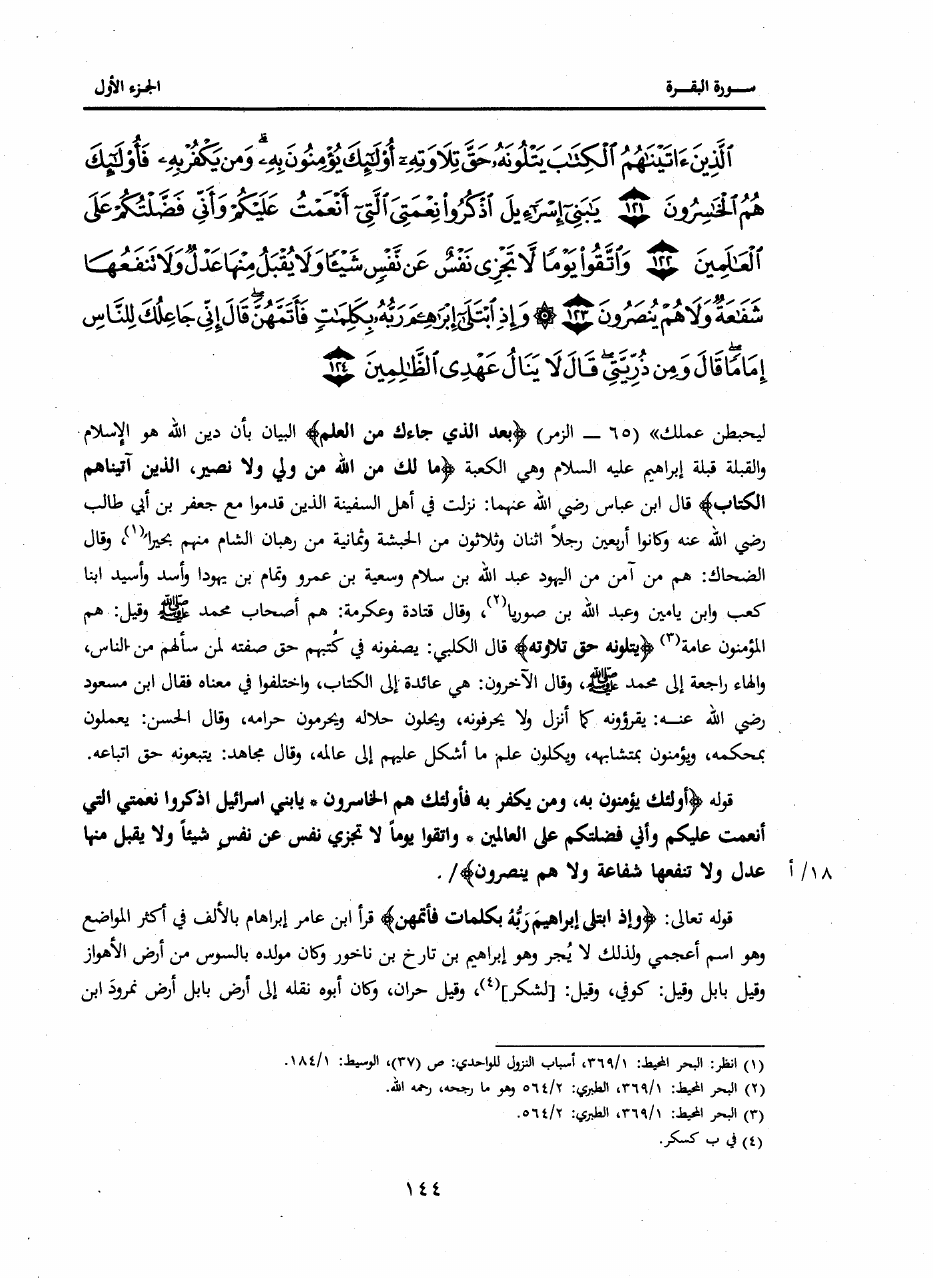 سورة البقرة
الجزء الأول
الَّذِينَ ءَاتَيْنَاهُمُ الْكِتَابَ يَتْلُونَهُ حَقَّ تِلَاوَتِهِ أُوْلَائِكَ يُؤْمِنُونَ بِهِ وَمَن يَكْفُرْ بِهِ فَأُوْلَائِكَ
هُمُ الْخَاسِرُونَ ١٢١ يَابَنِي إِسْرَاءِيلَ اذْكُرُوا نِعْمَتِيَ الَّتِي أَنْعَمْتُ عَلَيْكُمْ وَأَنِّي فَضَّلْتُكُمْ عَلَى
الْعَالَمِينَ ١٢٢ وَاتَّقُوا يَوْمًا لَّا تَجْزِي نَفْسٌ عَن نَّفْسٍ شَيْئًا وَلَا يُقْبَلُ مِنْهَا عَدْلٌ وَلَا تَنفَعُهَا
شَفَاعَةٌ وَلَا هُمْ يُنصَرُونَ ١٢٣ ۞ وَإِذِ ابْتَلَى إِبْرَاهِيمَ رَبُّهُ بِكَلِمَاتٍ فَأَتَمَّهُنَّ قَالَ إِنِّي جَاعِلُكَ لِلنَّاسِ
إِمَامًا قَالَ وَمِن ذُرِّيَّتِي قَالَ لَا يَنَالُ عَهْدِي الظَّالِمِينَ ١٢٤
ليحبطن عملك» (٦٥ ــ الزمر) ﴿بعد الذي جاءك من العلم﴾ البيان بأن دين الله هو الإسلام
والقبلة قبلة إبراهيم عليه السلام وهي الكعبة ﴿ما لك من الله من ولي ولا نصير، الذين آتيناهم
الكتاب﴾ قال ابن عباس رضي الله عنهما: نزلت في أهل السفينة الذين قدموا مع جعفر بن أبي طالب
رضي الله عنه وكانوا أربعين رجلاً اثنان وثلاثون من الحبشة وثمانية من رهبان الشام منهم بحيرا(١)، وقال
الضحاك: هم من آمن من اليهود عبد الله بن سلام وسعية بن عمرو وتمام بن يهودا وأسد وأسيد ابنا
كعب وابن يامين وعبد الله بن صوريا(٢)، وقال قتادة وعكرمة: هم أصحاب محمد ﷺ وقيل: هم
المؤمنون عامة(٣) ﴿يتلونه حق تلاوته﴾ قال الكلبي: يصفونه في كُتبهم حق صفته لمن سألهم من الناس،
والهاء راجعة إلى محمد ﷺ، وقال الآخرون: هي عائدة إلى الكتاب، واختلفوا في معناه فقال ابن مسعود
رضي الله عنــه: يقرؤونه كما أنزل ولا يحرفونه، ويحلون حلاله ويحرمون حرامه، وقال الحسن: يعملون
بمحكمه، ويؤمنون بمتشابهه، ويكلون علم ما أشكل عليهم إلى عالمه، وقال مجاهد: يتبعونه حق اتباعه.
قوله ﴿أولئك يؤمنون به، ومن يكفر به فأولئك هم الخاسرون * يابني اسرائيل اذكروا نعمتي التي
أنعمت عليكم وأني فضلتكم على العالمين * واتقوا يوماً لا تجزي نفس عن نفسٍ شيئاً ولا يقبل منها
عدل ولا تنفعها شفاعة ولا هم ينصرون﴾/ .
١٨/ أ
قوله تعالى: ﴿وإذ ابتلى إبراهيمَ رَبُّهُ بكلمات فأتمهن﴾ قرأ ابن عامر إبراهام بالألف في أكثر المواضع
وهو اسم أعجمي ولذلك لا يُجر وهو إبراهيم بن تارخ بن ناخور وكان مولده بالسوس من أرض الأهواز
وقيل بابل وقيل: كوفي، وقيل: [لشكر](٤)، وقيل حران، وكان أبوه نقله إلى أرض بابل أرض نمرودَ ابن
(١) انظر: البحر المحيط: ٣٦٩/١، أسباب النزول للواحدي: ص (٣٧)، الوسيط: ١٨٤/١.
(٢) البحر المحيط: ٣٦٩/١، الطبري: ٥٦٤/٢ وهو ما رجحه، رحمه الله.
(٣) البحر المحيط: ٣٦٩/١، الطبري: ٥٦٤/٢.
(٤) في ب كسكر.
١٤٤